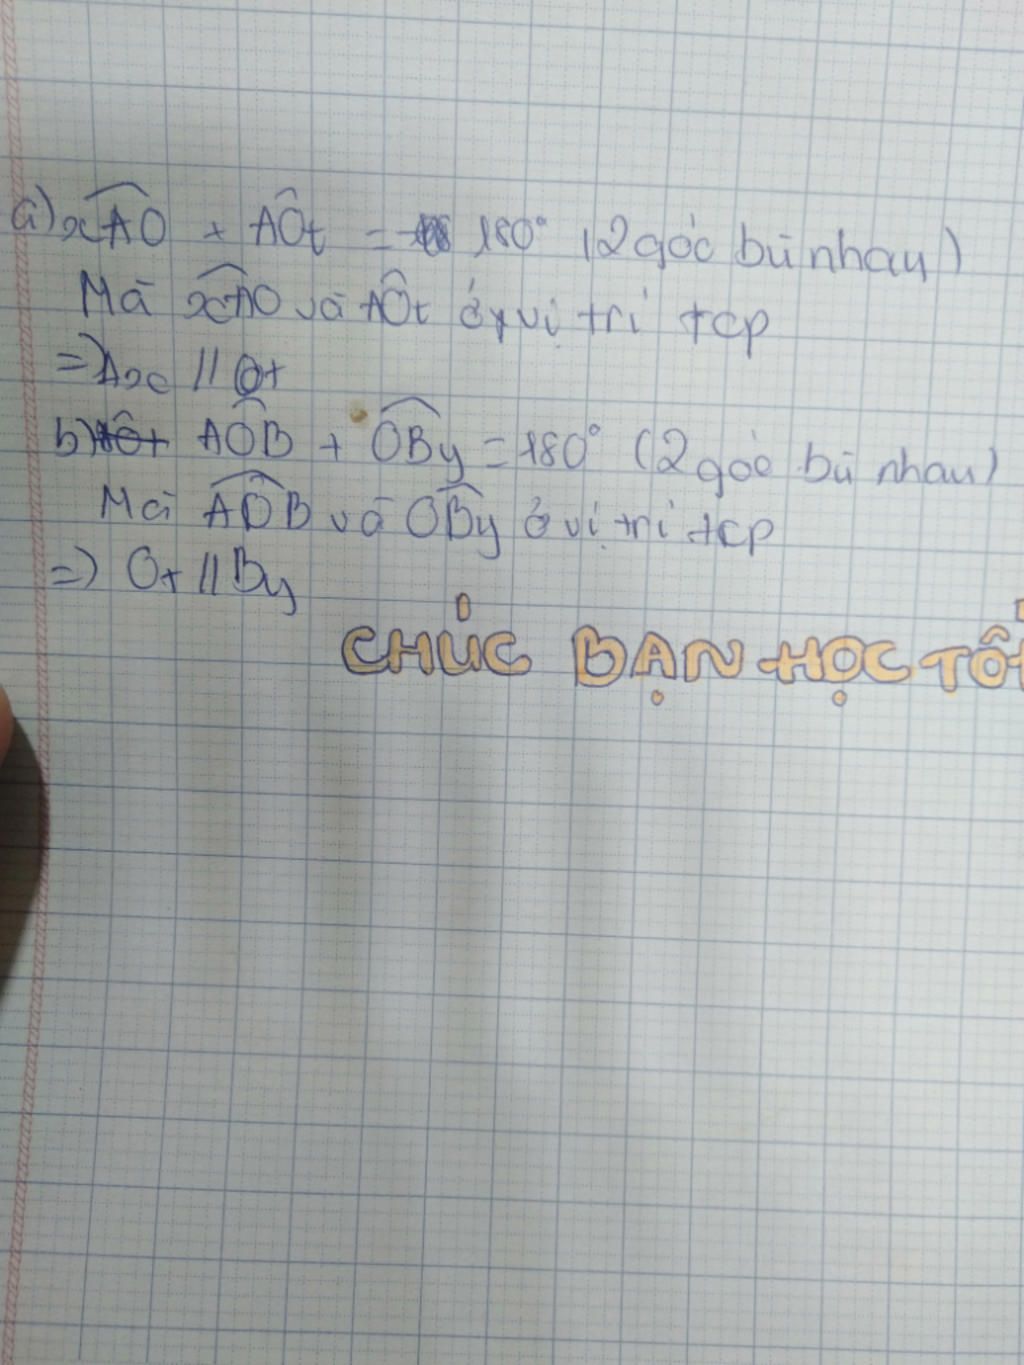 a) xAO + AOt = 180° (2 góc bù nhau)
Mà xAO và AOt ở vị trí tcp
=> Ax // Ot
b) AOB + OBy = 180° (2 góc bù nhau)
Mà AOB và OBy ở vị trí tcp
=> Ot // By
CHÚC BẠN HỌC TỐT